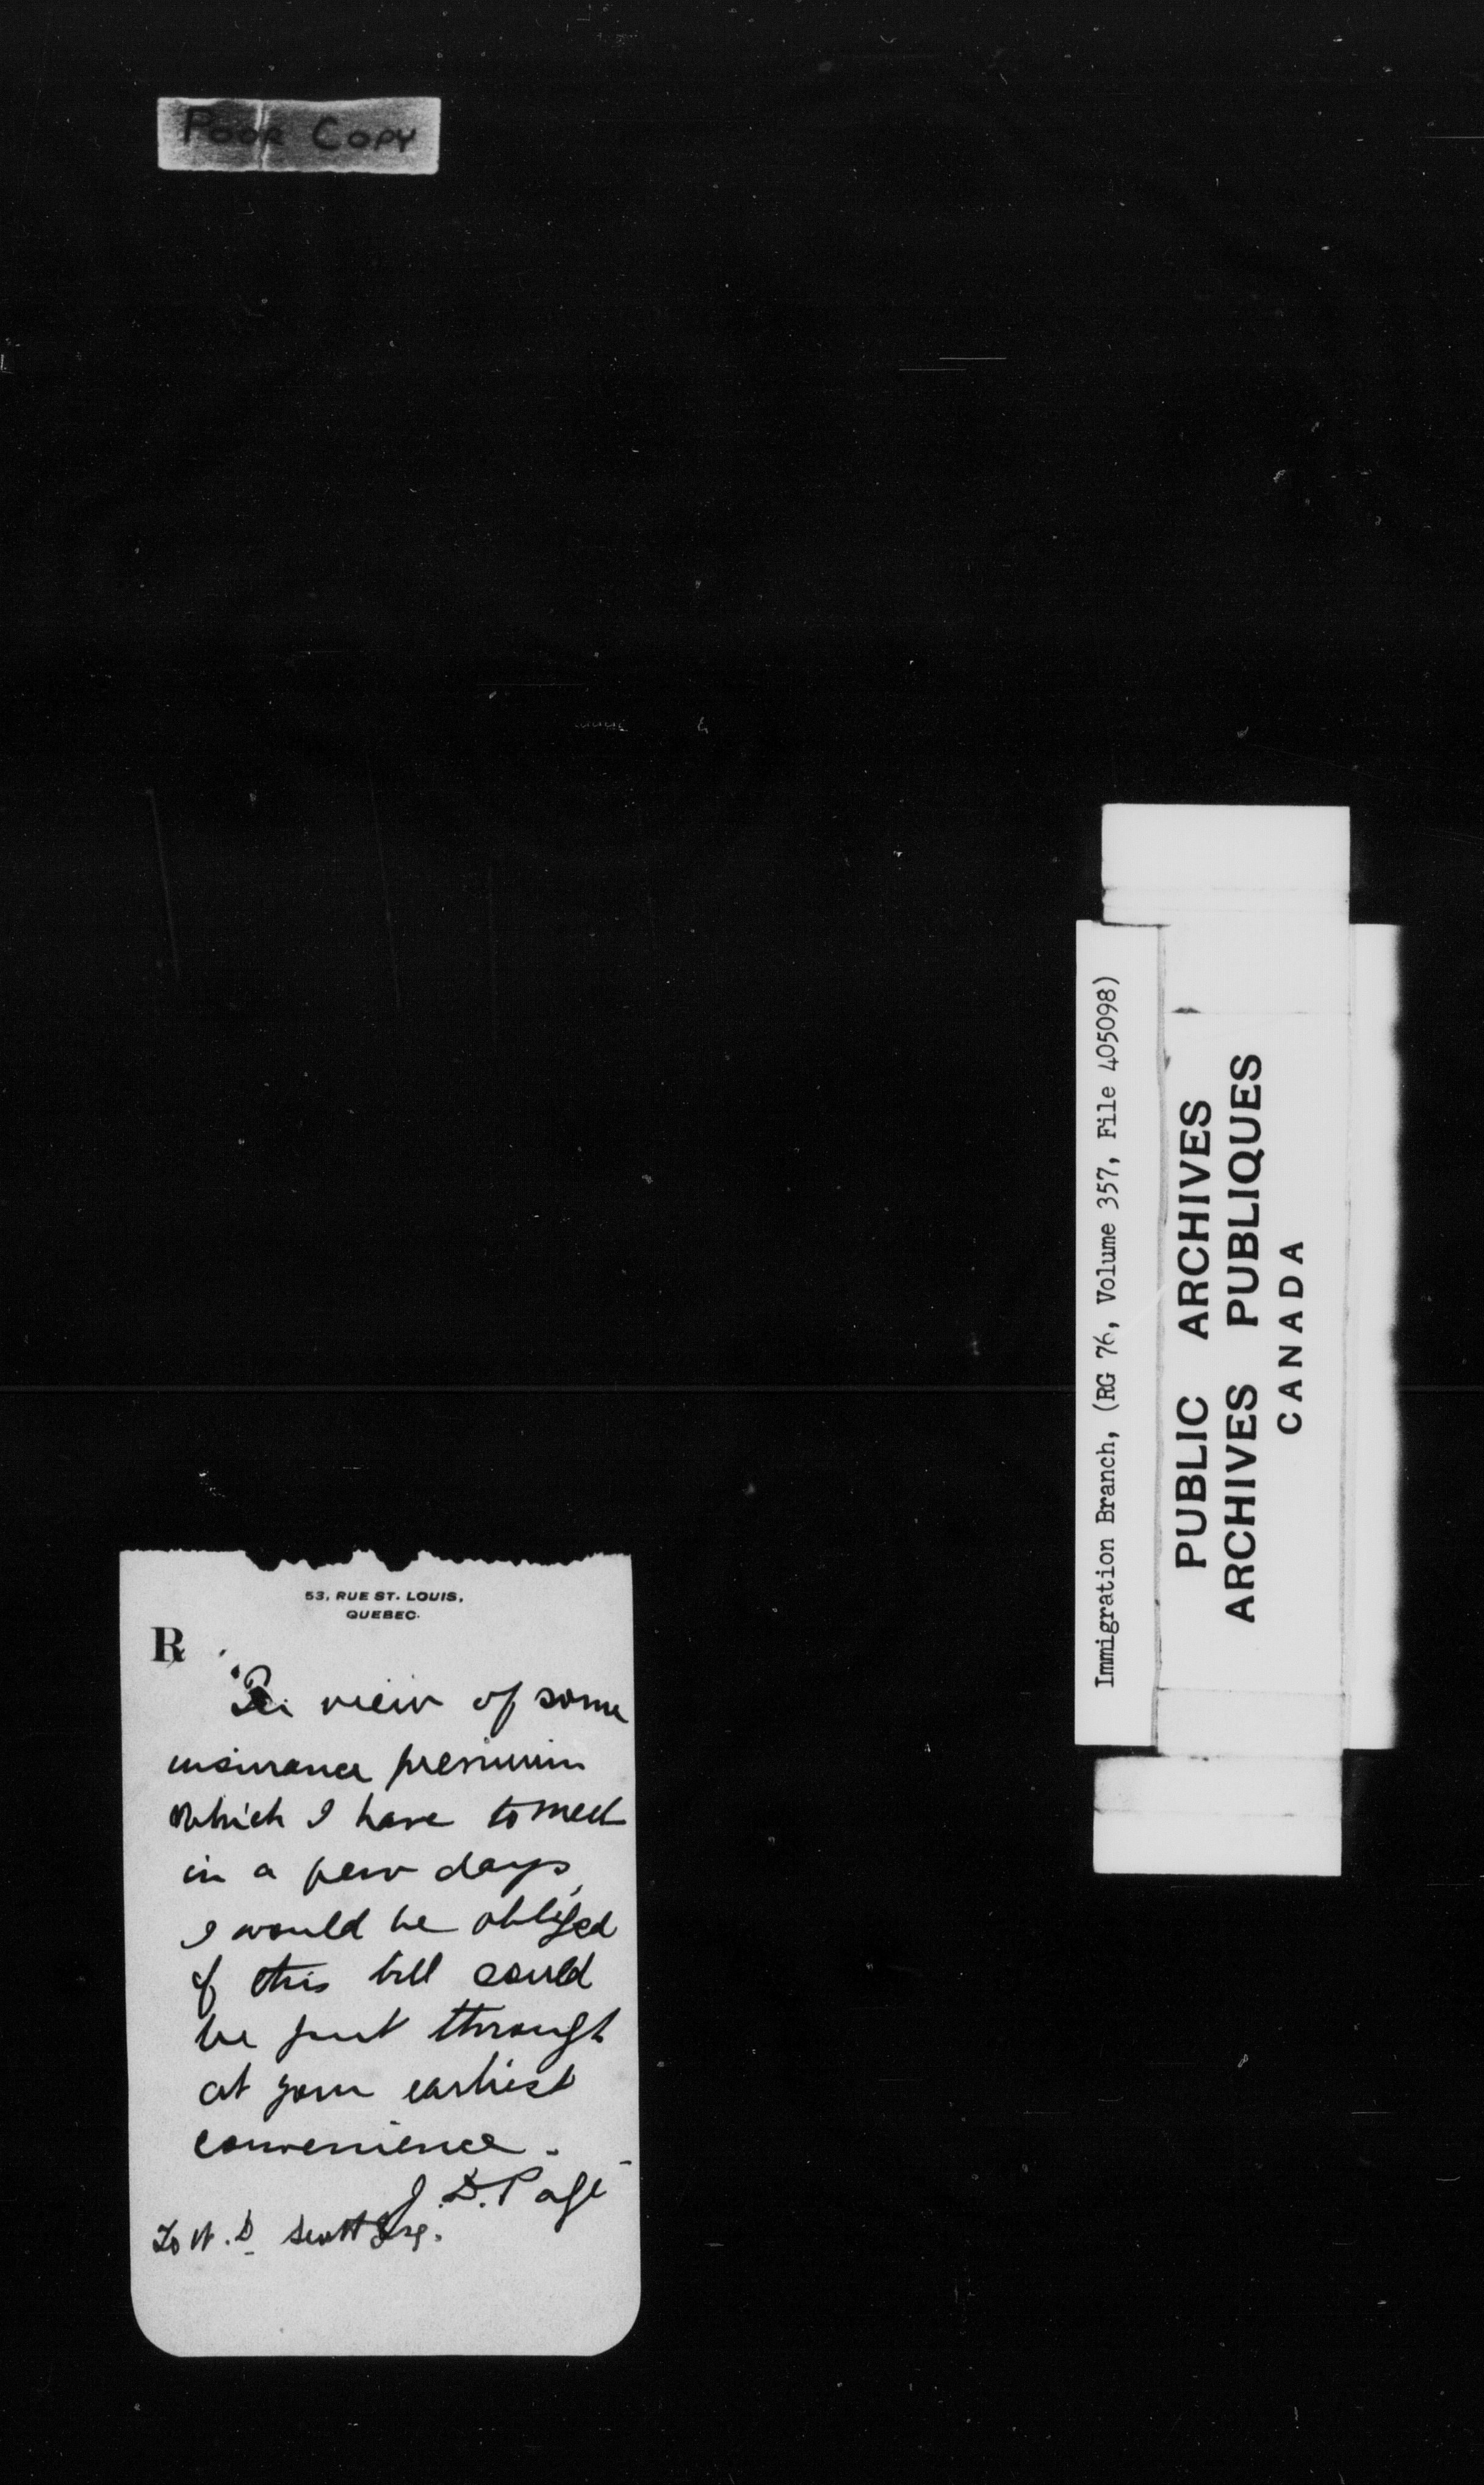 POOR COPY
53, RUE ST. LOUIS,
QUEBEC.
℞
In view of some
insurance premium
which I have to meet
in a few days,
I would be obliged
if this bill could
be put through
at your earliest
convenience.
J. D. Pagé
To W. D. Scott Esq.
Immigration Branch, (RG 76, Volume 357, File 405098)
PUBLIC ARCHIVES
ARCHIVES PUBLIQUES
CANADA